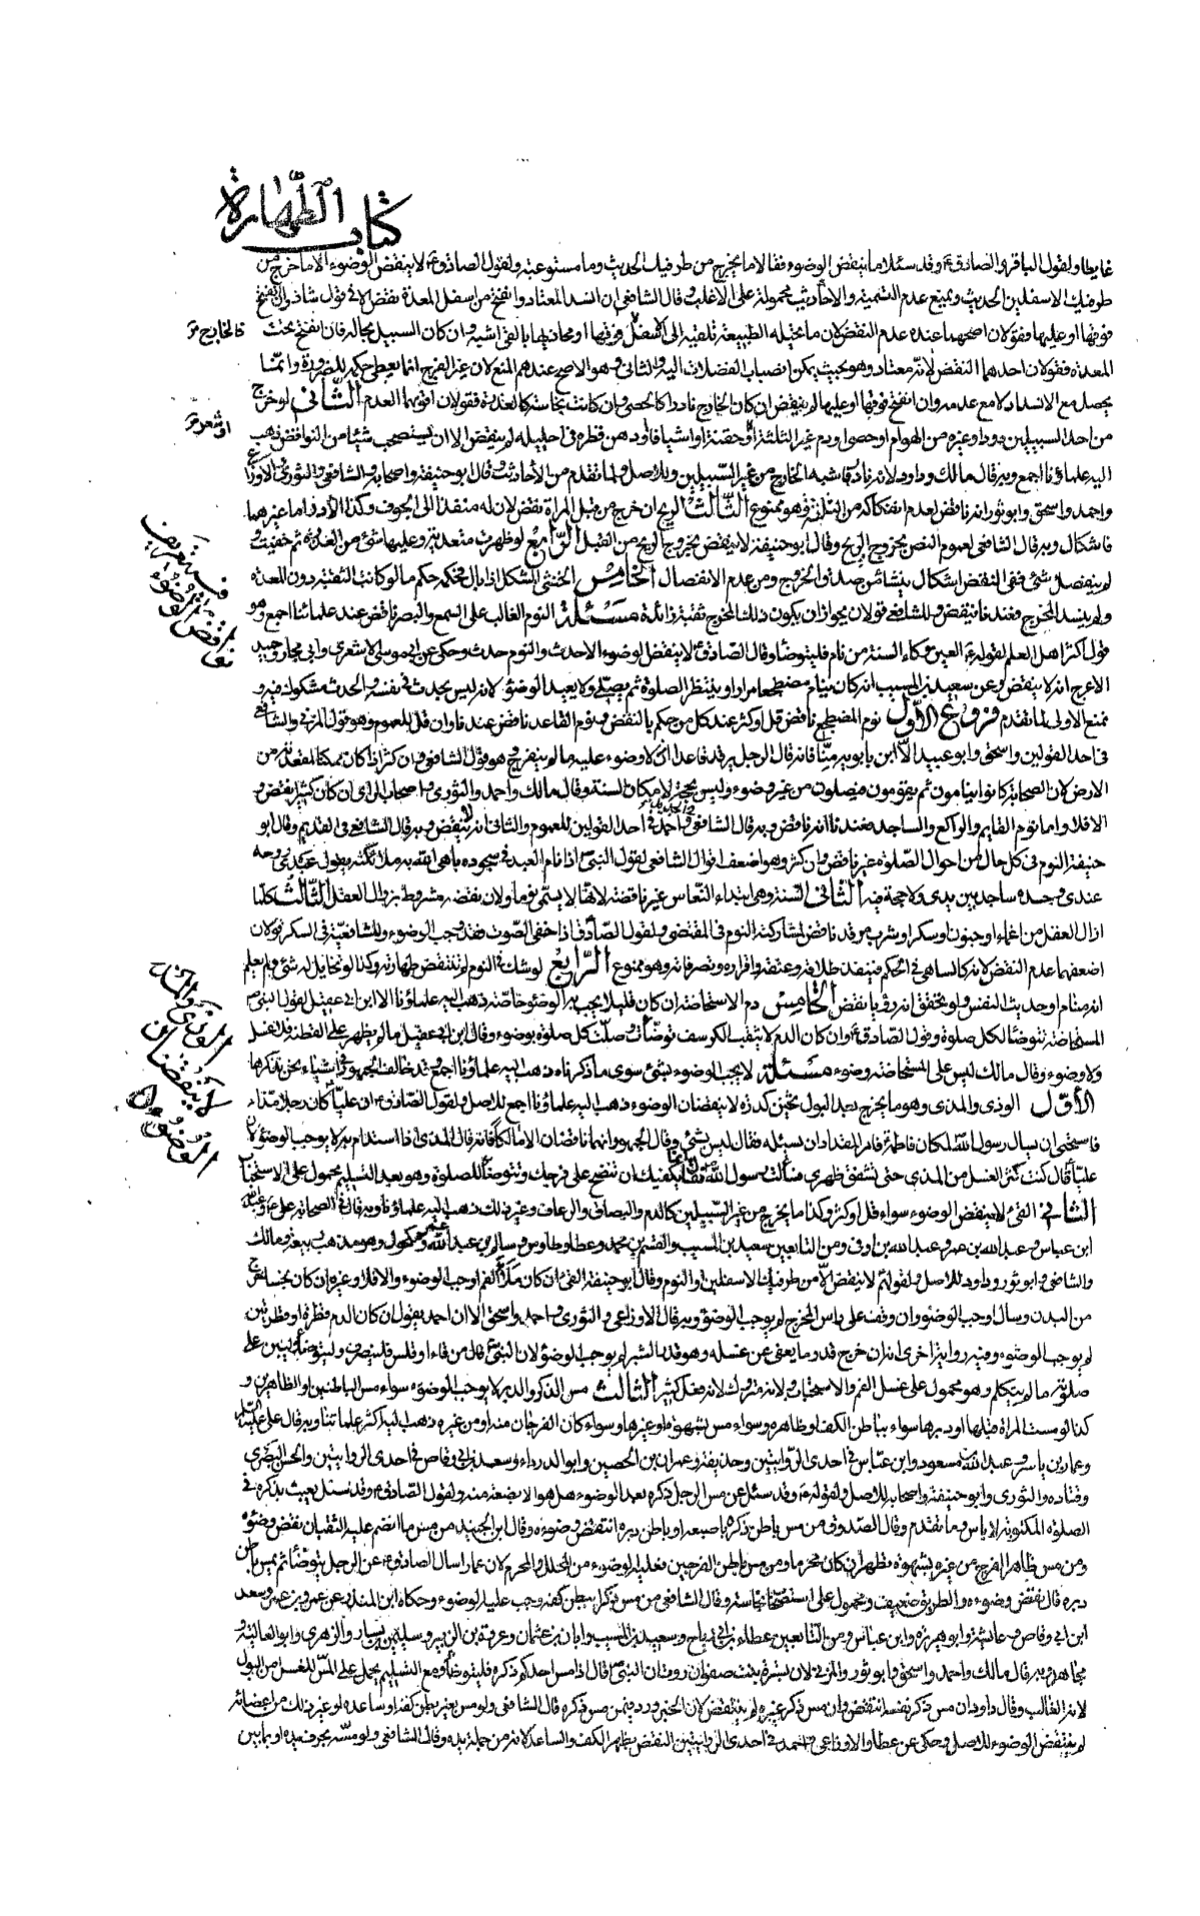 كتاب الطهارة
غايط ولقول الباقر والصادق ع وقد سئلا ما ينقض الوضوء فقالا ما يخرج من طرفيك الحديث وما مستوعبة ولقول الصادق ع لا ينقض الوضوء الا ما خرج من
طرفيك الاسفلين الحديث ويمنع عدم التسمية والاحاديث محمولة على الاغلب وقال الشافعي ان انسد المعتاد وانفتح من اسفل المعدة نقض الا في قول شاذ وان انفتح
فوقها او عليها فقولان اصحهما عنده عدم النقض لان ما تحيله الطبيعة تلقيه الى الاسفل ففوقها او محاذيها بالقئ اشبه وان كان السبيل بحاله فان انفتح تحت
المعدة فقولان احدهما النقض لانه معتاد وهو بحيث يمكن انصباب الفضلات اليه والثاني وهو الاصح عندهم المنع لان غير الفرج انما يعطى حكمه للضرورة وانما
يحصل مع الانسداد لا مع عدمه وان انفتح فوقها او عليها لم ينقض ان كان الخارج نادرا كالحصى وان كانت نجاسته كالعذرة فقولان اقويهما العدم الثاني لو خرج
من احد السبيلين دود او غيره من الهوام او حصى او دم غير الثلثة او حقنة او اشياف او دهن قطره في احليله لم ينقض الا ان يستصحب شيئا من النواقض ذهب
اليه علماؤنا اجمع وبه قال مالك وداود لانه نادر فاشبه الخارج من غير السبيلين وللاصل ولما تقدم من الاحاديث وقال ابو حنيفة واصحابه والشافعي والثوري والاوزاعي
واحمد واسحق وابو ثور انه ناقض لعدم انفكاكه من البلة وهو ممنوع الثالث الريح ان خرج من قبل المراة نقض لان له منفذا الى الجوف وكذا الأدر اما غيرهما
فاشكال وبه قال الشافعي لعموم النص بخروج الريح وقال ابو حنيفة لا ينقض بخروج الريح من القبل الرابع لو ظهرت مقعدته وعليها شئ من العذرة ثم خفيت و
لم ينفصل شئ ففي النقض اشكال ينشأ من صدق الخروج ومن عدم الانفصال الخامس الخنثى المشكل اذا بال فحكمه حكم ما لو كانت الثقبة دون المعدة
ولم ينسد المخرج فعندنا ينقض وللشافعي قولان لجواز ان يكون ذلك المخرج ثقبة زائدة مسئلة النوم الغالب على السمع والبصر ناقض عند علمائنا اجمع وهو
قول اكثر اهل العلم لقوله ع العين وكاء السنة من نام فليتوضأ وقال الصادق ع لا ينقض الوضوء الا حدث والنوم حدث وحكي عن ابي موسى الاشعري وابي مجلز وحميد
الاعرج انه لا ينقض وعن سعيد بن المسيب انه كان ينام مضطجعا مرارا وينتظر الصلوة ثم يصلي ولا يعيد الوضوء لانه ليس بحدث في نفسه والحدث مشكوك فيه و
نمنع الاولى لما تقدم فروع الاول نوم المضطجع ناقض قل او كثر عند كل من حكم بالنقض ونوم القاعد ناقض عندنا وان قل للعموم وهو قول المزني والشافعي
في احد القولين واسحق وابو عبيد الا ابن بابويه منا فانه قال الرجل يرقد قاعدا لا وضوء عليه ما لم ينفرج وهو قول الشافعي وان كثر اذا كان ممكنا لمقعدته من
الارض لان الصحابة كانوا ينامون ثم يقومون فيصلون من غير وضوء وليس بحجة لامكان السنة وقال مالك واحمد والثوري واصحاب الراي ان كان كثيرا نقض و
الا فلا واما نوم القايم والراكع والساجد فعندنا انه ناقض وبه قال الشافعي واحمد في احد القولين للعموم والثاني انه لا ينقض وبه قال الشافعي في القديم وقال ابو
حنيفة النوم في كل حال من احوال الصلوة غير ناقض وان كثر وهو اضعف اقوال الشافعي لقول النبي ص اذا نام العبد في سجوده باهى الله به ملائكته يقول عبدي روحه
عندي وجسده ساجد بين يدي ولا حجة فيه الثاني السنة وهي ابتداء النعاس غير ناقضة لانها لا يسمى نوما ولان نقضه مشروط بزوال العقل الثالث كلما
ازال العقل من اغماء او جنون او سكر او شرب مرقد ناقض لمشاركته النوم في المقتضي ولقول الصادق ع اذا خفي الصوت فقد وجب الوضوء وللشافعية في السكر قولان
اضعفهما عدم النقض لانه كالصاحي في الحكم فينفذ طلاقه وعتقه واقراره وتصرفاته وهو ممنوع الرابع لو شك في النوم لم تنتقض طهارته وكذا لو تخايل له شئ ولم يعلم
انه منام او حديث النفس ولو تحقق انه رؤيا نقض الخامس دم الاستحاضة ان كان قليلا يجب به الوضوء خاصة ذهب اليه علماؤنا الا ابن ابي عقيل لقول النبي ص
المستحاضة تتوضأ لكل صلوة وقول الصادق ع وان كان الدم لا يثقب الكرسف توضأت وصلت كل صلوة بوضوء وقال ابن ابي عقيل ما لم يظهر على القطنة فلا غسل
ولا وضوء وقال مالك ليس على المستحاضة وضوء مسئلة لا يجب الوضوء بشئ سوى ما ذكرناه ذهب اليه علماؤنا اجمع وقد خالف الجمهور في اشياء نحن نذكرها
الأول الوذي والمذي وهو ما يخرج بعد البول ثخين كدر لا ينقضان الوضوء ذهب اليه علماؤنا اجمع للاصل ولقول الصادق ع ان عليا كان رجلا مذاء
فاستحيى ان يسال رسول الله لمكان فاطمة فامر المقداد ان يسئله فقال ليس بشئ وقال الجمهور انهما ناقضان الا مالكا فانه قال المذي اذا استدام به لا يوجب الوضوء لان
عليا قال كنت اكثر الغسل من المذي حتى تشقق ظهري فسالت رسول الله ص فقال انما يكفيك ان تنضح على فرجك وتتوضأ للصلوة وهو بعد التسليم محمول على الاستحباب
الثاني القئ لا ينقض الوضوء سواء قل او كثر وكذا ما يخرج من غير السبيلين كالدم والبصاق والرعاف وغير ذلك ذهب اليه علماؤنا وبه قال في الصحابة علي ع وعبد الله
ابن عباس وعبد الله بن عمر وعبد الله بن اوفى ومن التابعين سعيد بن المسيب والقسم بن محمد وعطا وطاوس وسالم بن عبد الله بن عمر ومكحول وهو مذهب ربيعة ومالك
والشافعي وابو ثور وداود للاصل ولقولهم ع لا ينقض الا من طرفيك الاسفلين او النوم وقال ابو حنيفة القئ ان كان ملأ الفم اوجب الوضوء والا فلا وغيره ان كان نجسا خرج
من البدن وسال اوجب الوضوء وان وقف على راس المخرج لم يوجب الوضوء وبه قال الاوزاعي والثوري واحمد واسحق الا ان احمد يقول ان كان الدم قطرة او قطرتين
لم يوجب الوضوء وعنه رواية اخرى انه ان خرج قدر ما يعفى عن غسله وهو قدر الشبر لم يوجب الوضوء لان النبي ص قال من قاء او قلس فلينصرف وليتوضأ وليبن على
صلوته ما لم يتكلم وهو محمول على غسل الفم والاستحباب ولانه متروك لانه فعل كثير الثالث مس الذكر والدبر لا يوجب الوضوء سواء مس الباطنين او الظاهرين و
كذا لو مست المراة قبلها او دبرها سواء بباطن الكف او ظاهره وسواء مس بشهوة او غيرها وسواء كان الفرجان منه او من غيره ذهب اليه اكثر علمائنا وبه قال علي عليه السلام
وعمار بن ياسر وعبد الله بن مسعود وابن عباس في احدى الروايتين وحذيفة وعمران بن الحصين وابو الدرداء وسعد بن ابي وقاص في احدى الروايتين والحسن البصري
وقتادة والثوري وابو حنيفة واصحابه للاصل ولقوله ع وقد سئل عن مس الرجل ذكره بعد الوضوء هل هو الا بضعة منه ولقول الصادق ع وقد سئل يعبث بذكره في
الصلوة المكتوبة لا باس وما تقدم وقال الصدوق من مس باطن ذكره باصبعه او باطن دبره انتقض وضوءه وقال ابن الجنيد من مس ما انضم عليه الثقبان نقض وضوئه
ومن مس ظاهر الفرج من غيره بشهوة تطهر ان كان محرما ومن مس باطن الفرجين فعليه الوضوء من المحلل والمحرم لان عمار سال الصادق ع عن الرجل يتوضأ ثم يمس باطن
دبره قال نقض وضوءه والطريق ضعيف ومحمول على استصحاب نجاسته وقال الشافعي من مس ذكرا ببطن كفه وجب عليه الوضوء وحكاه ابن المنذر عن عمر وابن عمر وسعد
ابن ابي وقاص وعائشة وابو هريرة وابن عباس ومن التابعين عطاء بن ابي رباح وسعيد بن المسيب وابان بن عثمان وعروة بن الزبير وسليمان بن يسار والزهري وابو العالية و
مجاهد وبه قال مالك واحمد واسحق وابو ثور والمزني لان بسرة بنت صفوان روت ان النبي ص قال اذا مس احدكم ذكره فليتوضأ ومع التسليم يحمل على المس للغسل من البول
لانه الغالب وقال داود ان مس ذكر نفسه انتقض وان مس ذكر غيره لم ينتقض لان الخبر ورد فيمن مس ذكره قال الشافعي ولو مس بغير بطن كفه او ساعده او غير ذلك من اعضائه
لم ينتقض الوضوء للاصل وحكي عن عطا والاوزاعي واحمد في احدى الروايتين النقض بظهر الكف والساعد لانه من جملة يده وقال الشافعي ولو مسه بحرف يده او بما بين
فالخارج
او شعر
في تعريف
نواقض الوضوء
الوذي والمذي
لا ينقضان
الوضوء